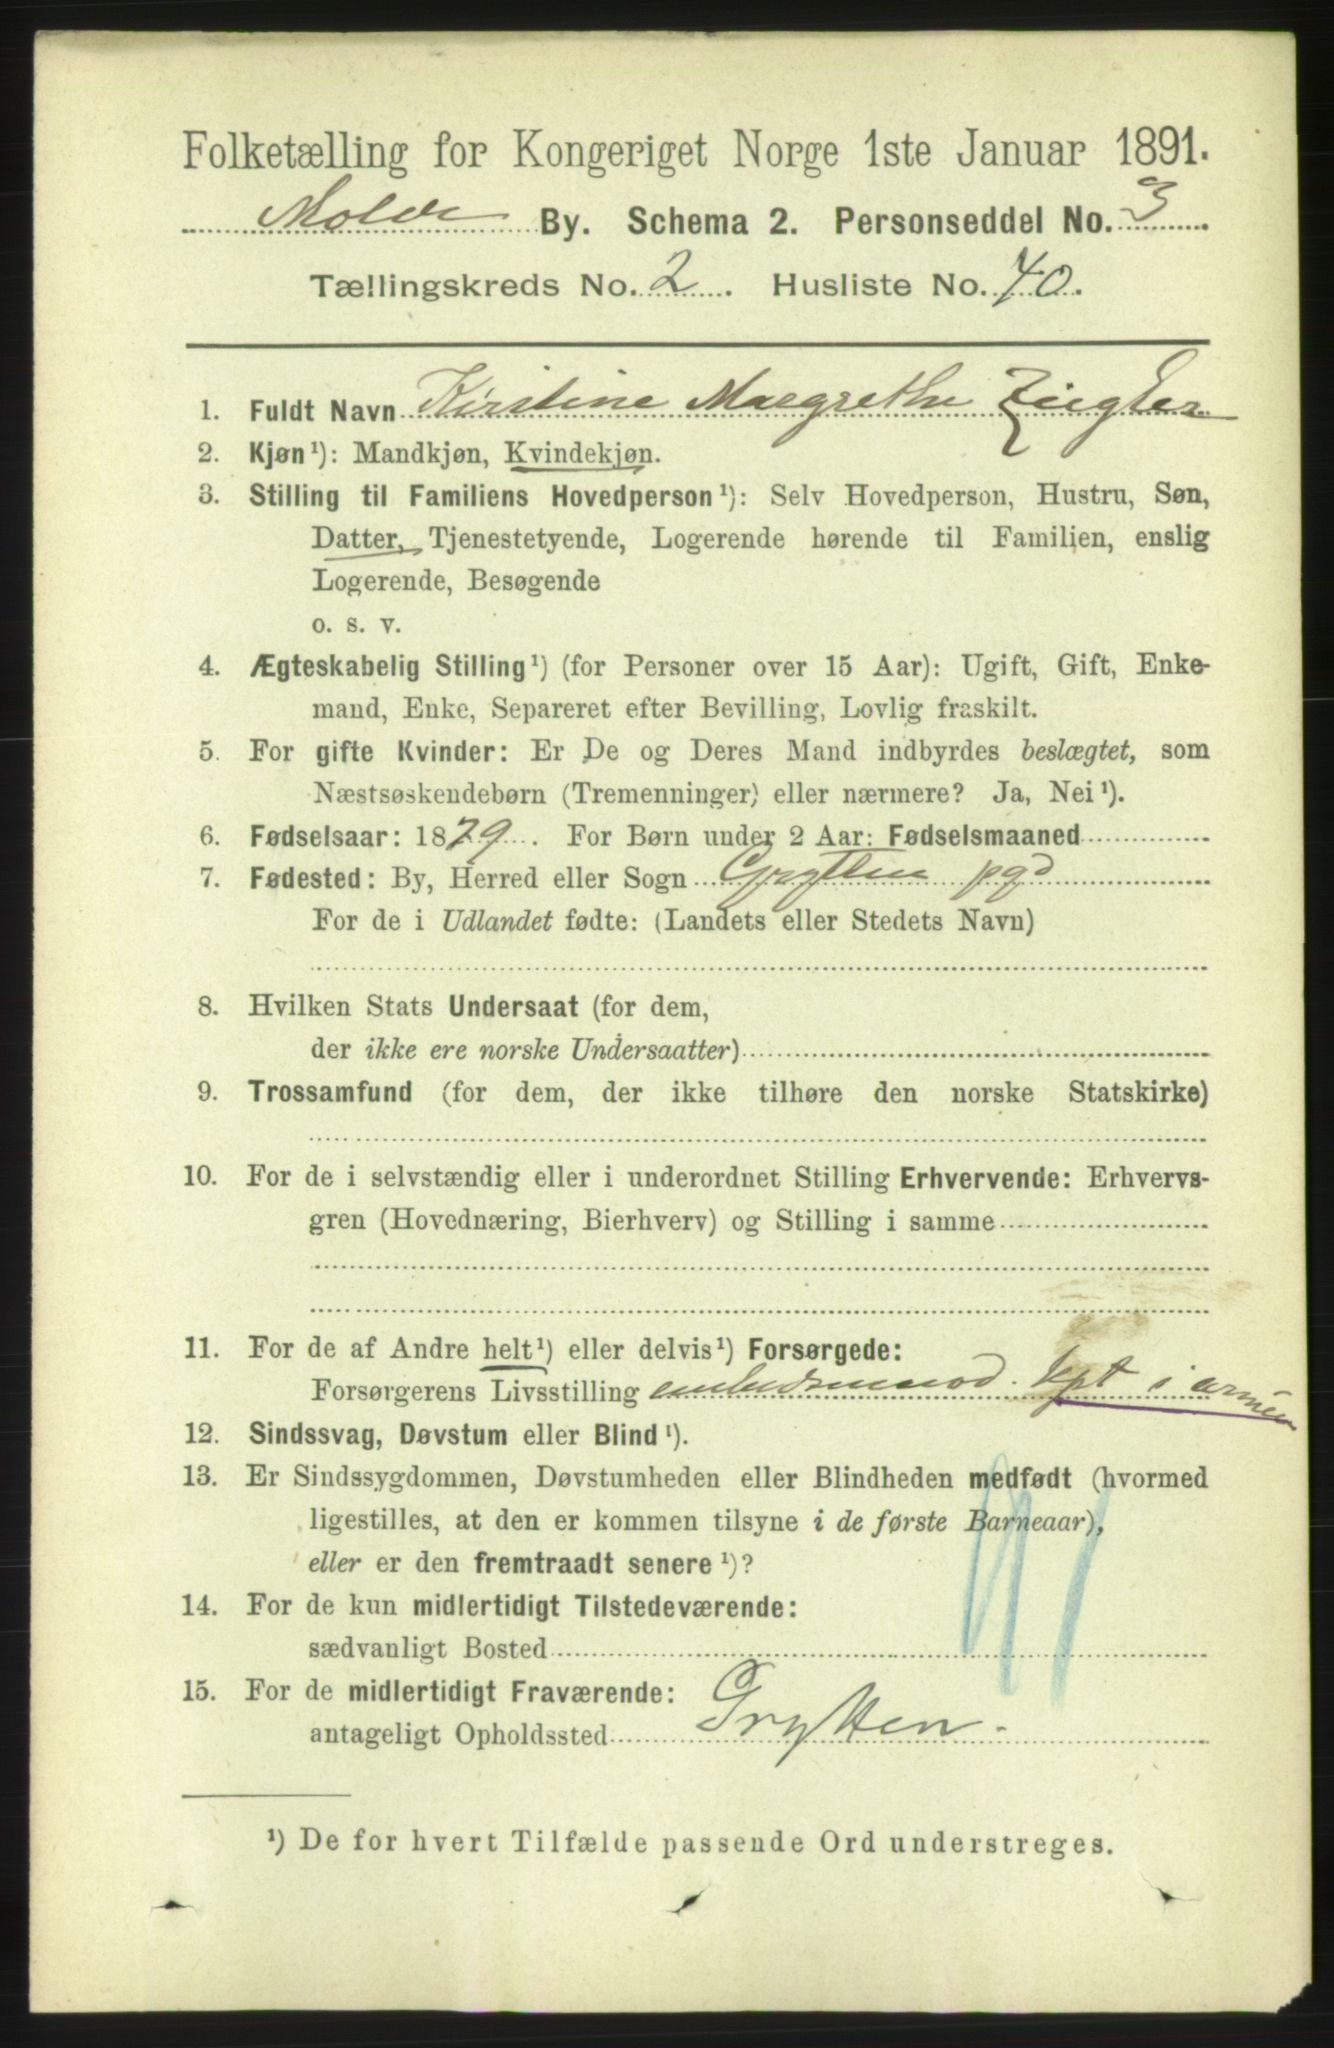 Folketælling for Kongeriget Norge 1ste Januar 1891.
Molde By. Schema 2. Personseddel No. 3
Tællingskreds No. 2. Husliste No. 40.
1. Fuldt Navn Kirstine Margrethe Ziegler
2. Kjøn¹): Mandkjøn, Kvindekjøn.
3. Stilling til Familiens Hovedperson¹): Selv Hovedperson, Hustru, Søn,
Datter, Tjenestetyende, Logerende hørende til Familien, enslig
Logerende, Besøgende
o. s. v.
4. Ægteskabelig Stilling¹) (for Personer over 15 Aar): Ugift, Gift, Enke-
mand, Enke, Separeret efter Bevilling, Lovlig fraskilt.
5. For gifte Kvinder: Er De og Deres Mand indbyrdes beslægtet, som
Næstsøskendebørn (Tremenninger) eller nærmere? Ja, Nei¹).
6. Fødselsaar: 1879. For Børn under 2 Aar: Fødselsmaaned
7. Fødested: By, Herred eller Sogn Grytten pgd
For de i Udlandet fødte: (Landets eller Stedets Navn)
8. Hvilken Stats Undersaat (for dem,
der ikke ere norske Undersaatter)
9. Trossamfund (for dem, der ikke tilhøre den norske Statskirke)
10. For de i selvstændig eller i underordnet Stilling Erhvervende: Erhvervs-
gren (Hovednæring, Bierhverv) og Stilling i samme
11. For de af Andre helt¹) eller delvis¹) Forsørgede:
Forsørgerens Livsstilling embedsmand. kpt i armeen
12. Sindssvag, Døvstum eller Blind¹).
13. Er Sindssygdommen, Døvstumheden eller Blindheden medfødt (hvormed
ligestilles, at den er kommen tilsyne i de første Barneaar),
eller er den fremtraadt senere¹)?
14. For de kun midlertidigt Tilstedeværende:
sædvanligt Bosted
15. For de midlertidigt Fraværende:
antageligt Opholdssted Grytten.
¹) De for hvert Tilfælde passende Ord understreges.